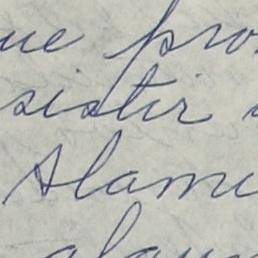 ue pro
sistir
Alame
algun